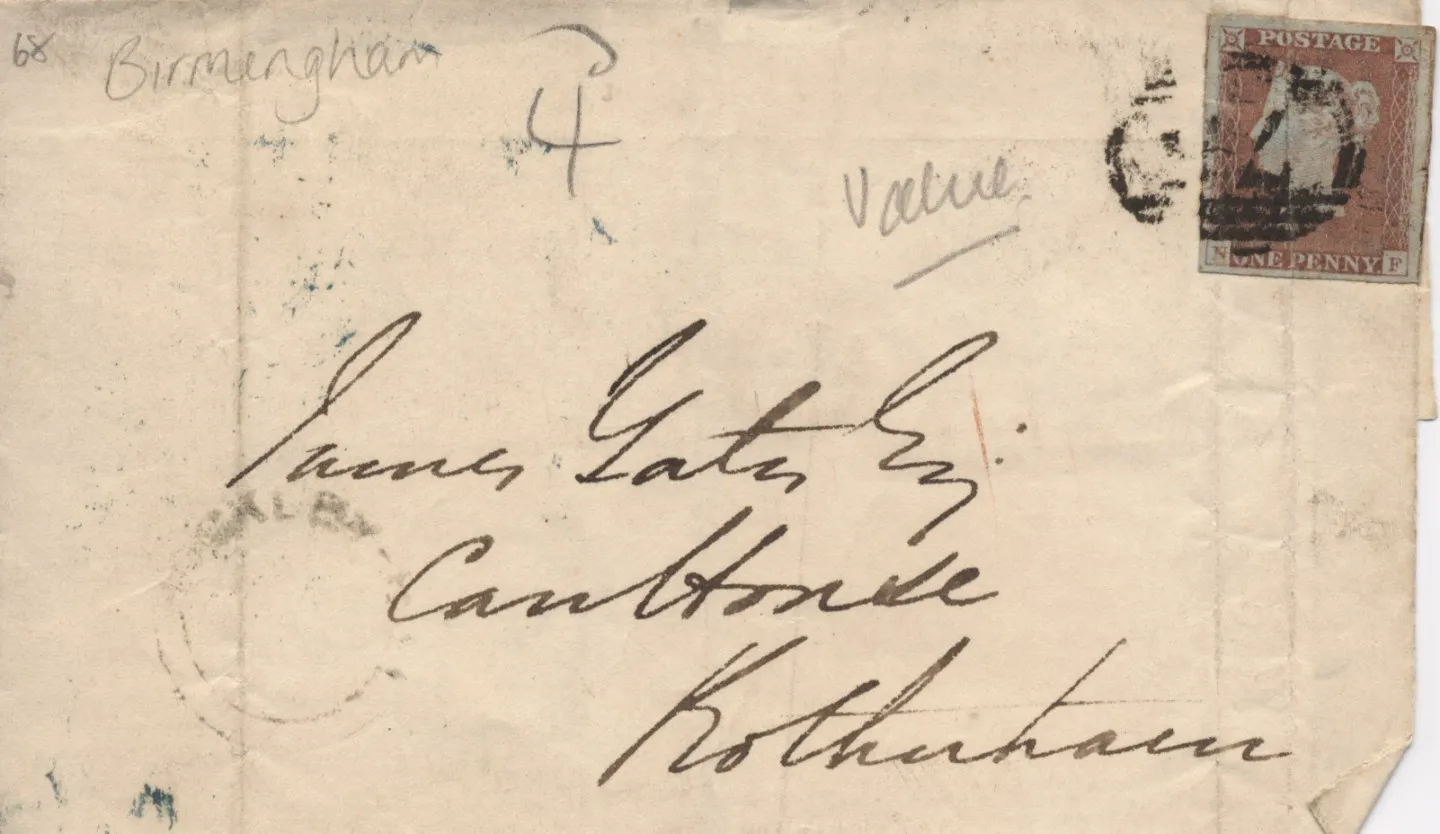 68 Birmingham
4
value
POSTAGE
N ONE PENNY F
James Yates Esq
Carr House
Rotherham